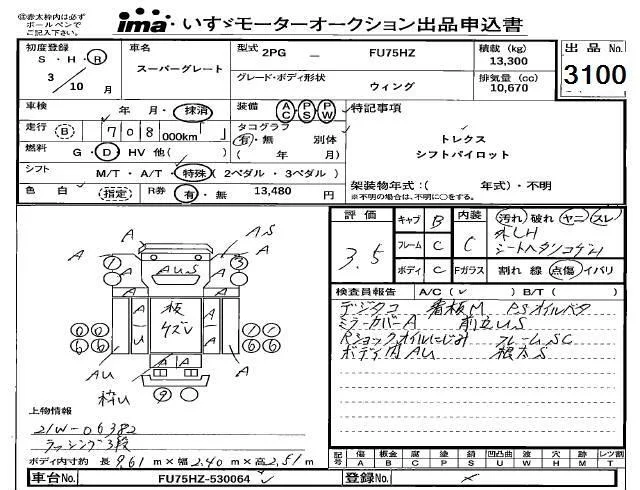 ㊟赤太枠内は必ず
ボールペンで
ご記入下さい。
ima いすゞモーターオークション出品申込書
初度登録
S・H・R
3／10 月
車名
スーパーグレート
型式 2PG － FU75HZ
グレード・ボディ形状
ウィング
積載 (kg)
13,300
排気量 (cc)
10,670
出品No.
3100
車検 年 月・抹消
装備 AC PS PW
特記事項
トレクス
シフトパイロット
走行 B 708 000km
タコグラフ
有・無 別体
( 年 月)
燃料 G・D・HV 他( )
シフト M/T・A/T・特殊 (2ペダル・3ペダル)
架装物年式:( 年式)・不明
※不明の場合は、不明に○をする。
色 白 指定 R券 有・無 13,480 円
評価
3.5
キャブ B
フレーム C
ボディ C
内装 C
Fガラス
汚れ 破れ ヤニ スレ
シートヘタリコゲ
割れ 線 点傷 イバリ
検査員報告 A/C( ✓ ) B/T( )
デジタコ 看板M PSオイルベタ
ミラーカバーA 前立US
Rショックオイルにじみ フレームSC
ボディ内AU 根太S
A
A S
A
A
A
1
3
AUS
板
キズU
A
U
A
U
6 6
1 1
6 6
AU
A
A
A
枠U
9
上物情報
21W-06382
ラッシング3段
ボディ内寸約 長 9.61 m×幅 2.40 m×高 2.51 m
記号
傷 板金 腐 塗 錆 凹凸曲 波 穴 外 無 要
A B C P S U W H X M T
車台No. FU75HZ-530064 ✓
登録No.